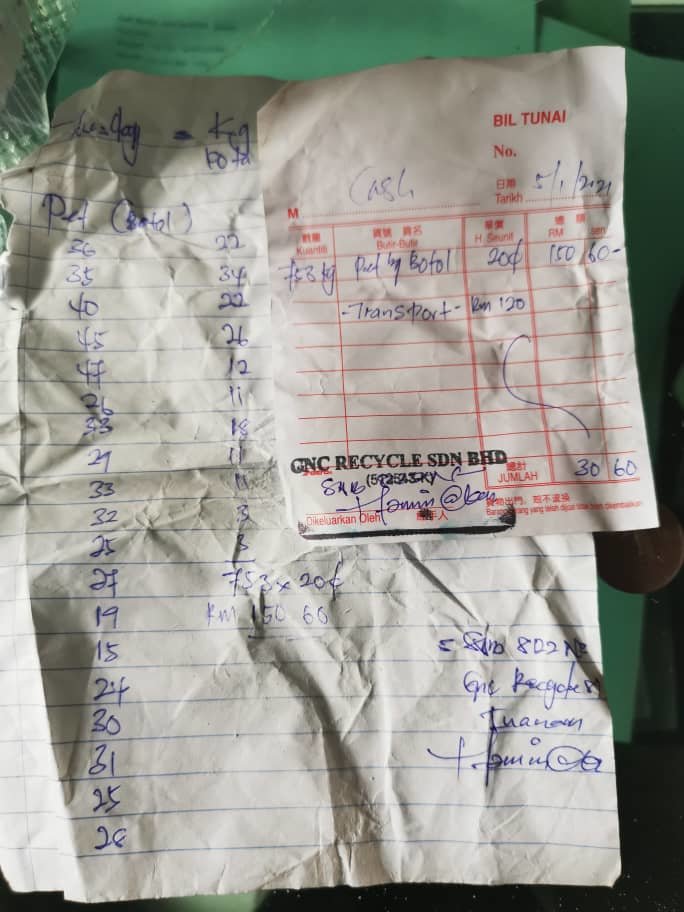 = Kg
Pet (Botol)
36 22
35 34
40 22
45 26
47 12
26 11
33 18
29 11
33 11
32 3
25 3
27 753 x 20¢
19 RM 150 60
15
24
30
31
25
28
802
Gnc Recycle
BIL TUNAI
No.
日期
Tarikh 5/1/2021
M Cash
數量 貨號 貨名 單價 總額
Kuantiti Butir-Butir H. Seunit RM sen
753 kg Pet Botol 20¢ 150 60-
-Transport- RM 120
GNC RECYCLE SDN BHD
總計
JUMLAH 30 60
Dikeluarkan Oleh
貨物出門，恕不退換
Barang-barang yang telah dijual tidak boleh dikembalikan